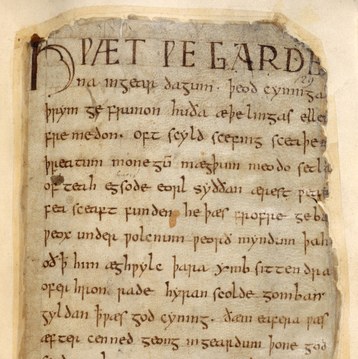 HǷÆT ǷE GARDE
na ingear dagum. þeod cyninga
þrym ge frunon huða æþelingas elle
fre medon. oft scyld scefing sceaþe
þreatum monegū mægþum meodo setla
of teah egsode eorl syððan ærest
fea sceaft funden he þæs frofre geba
ƿeox under ƿolcnum ƿeorð myndum þah
oðꝥ him æghƿylc þara ymb sittendra
ofer hron rade hyran scolde gomban
gyldan ꝥ ƿæs god cyning. ðæm eafera ƿæs
æfter cenned geong in geardum þone god